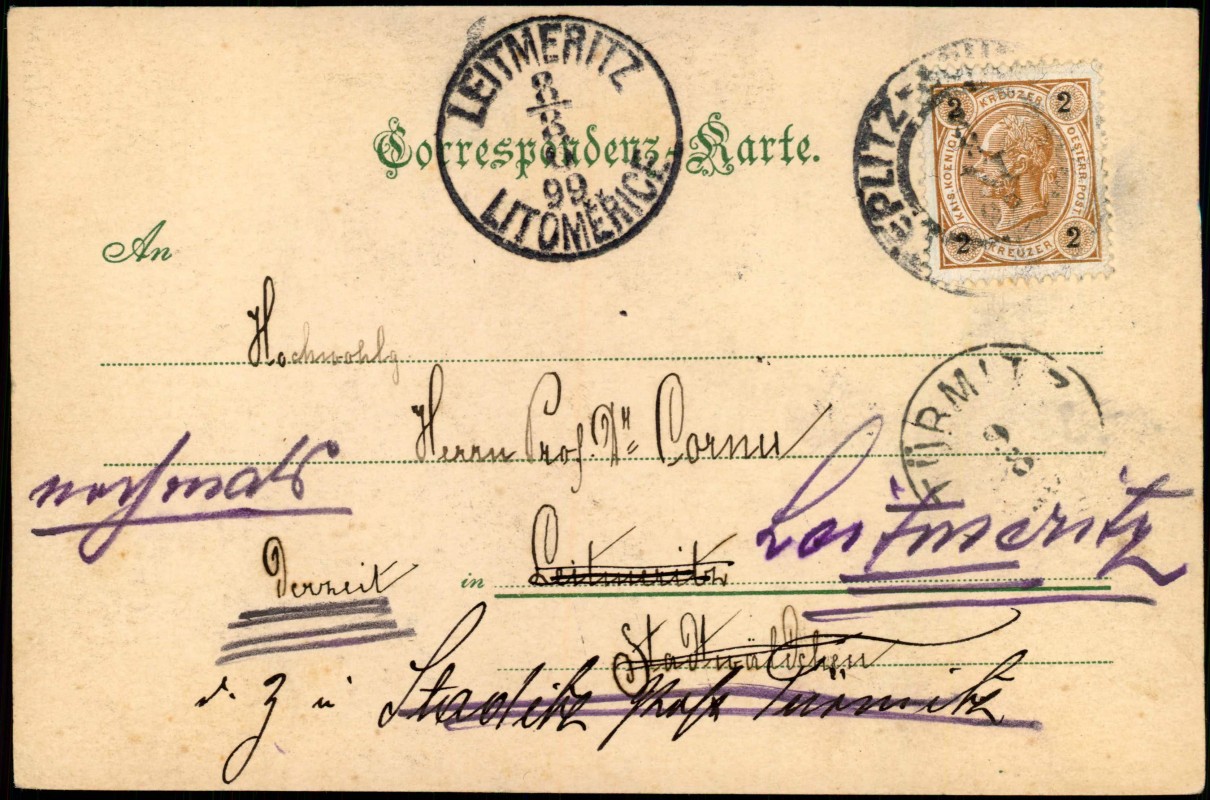 LEITMERITZ
8
8
99
LITOMĚŘICE
Correspondenz-Karte.
TEPLITZ
2 KREUZER 2
KAIS. KOENIG. OESTERR. POST.
2 KREUZER 2
An
Hochwohlg
TÜRMITZ
Herrn Prof. Dr Cornu
nochmals
Leitmeritz
Derzeit
in Leitmeritz
Stadtwäldchen
d. Z in Staditz Post Türmitz